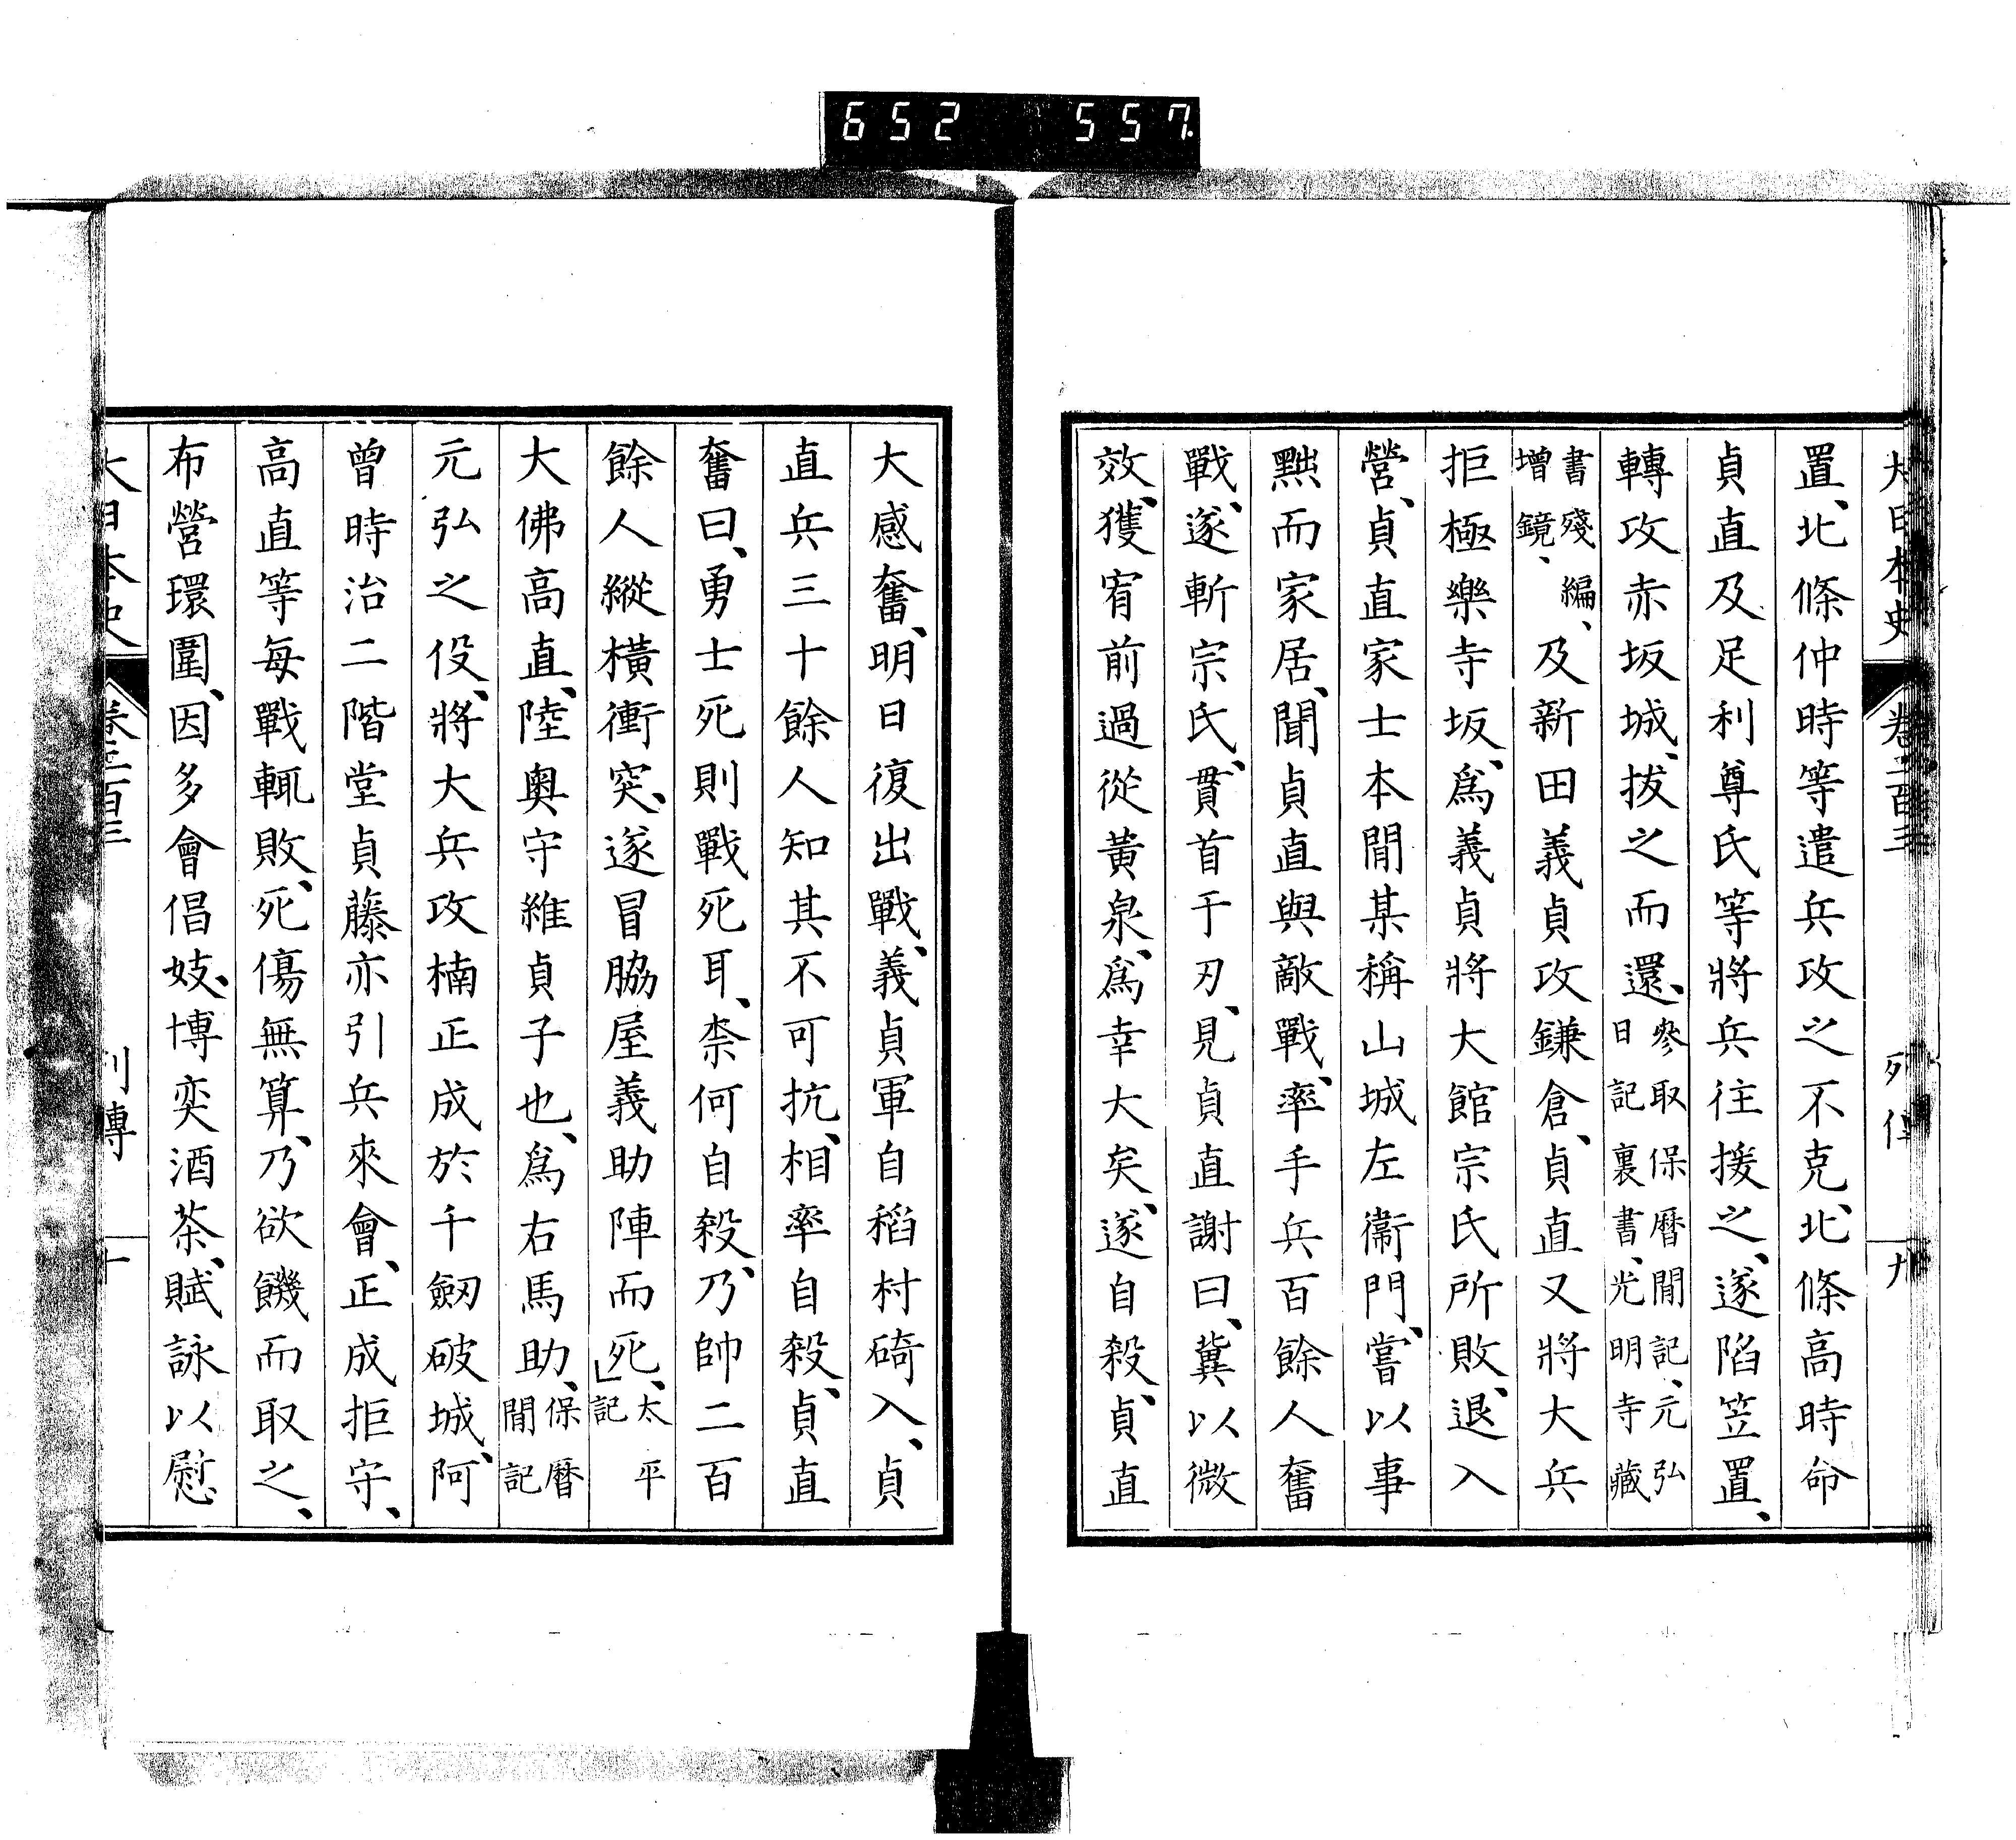 652 557
大日本史 卷二百三 列傳 九
置、北條仲時等遣兵攻之不克、北條高時命
貞直及足利尊氏等將兵往援之、遂陷笠置、
轉攻赤坂城、拔之而還、參取保曆閒記、元弘日記裏書、光明寺藏
書殘編、增鏡、及新田義貞攻鎌倉、貞直又將大兵
拒極樂寺坂、爲義貞將大館宗氏所敗、退入
營、貞直家士本閒某稱山城左衞門、嘗以事
黜而家居、聞貞直與敵戰、率手兵百餘人奮
戰、遂斬宗氏、貫首于刃、見貞直謝曰、冀以微
效、獲宥前過從黃泉、爲幸大矣、遂自殺、貞直
大感奮、明日復出戰、義貞軍自稻村碕入、貞
直兵三十餘人知其不可抗、相率自殺、貞直
奮曰、勇士死則戰死耳、柰何自殺、乃帥二百
餘人縱橫衝突、遂冒脇屋義助陣而死、」太平記
大佛高直、陸奧守維貞子也、爲右馬助、保曆閒記
元弘之役、將大兵攻楠正成於千劔破城、阿
曾時治二階堂貞藤亦引兵來會、正成拒守、
高直等每戰輒敗、死傷無算、乃欲饑而取之、
布營環圍、因多會倡妓、博奕酒茶、賦詠以慰
大日本史 卷二百三 列傳 十